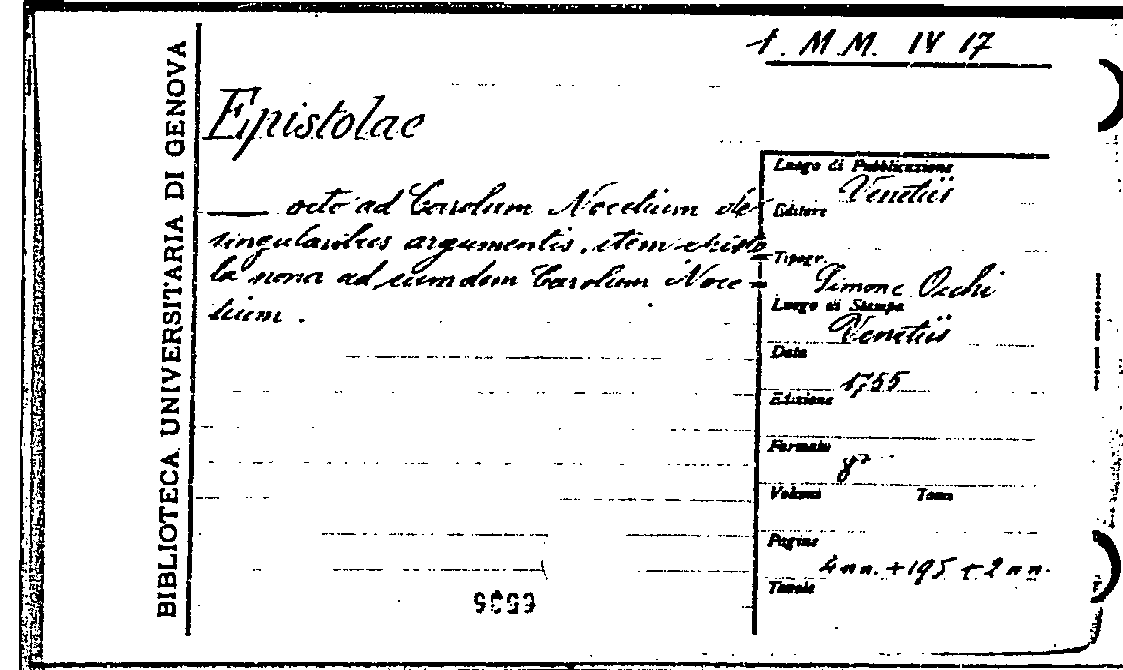 1. M M. IV 17
BIBLIOTECA UNIVERSITARIA DI GENOVA
Epistolae
octo ad Carolum Nocetium de
singularibus argumentis, item episto=
la nona ad eumdem Carolum Noce=
tium.
Luogo di Pubblicazione
Venetiis
Editore
Tipogr.
Simone Occhi
Luogo di Stampa
Venetiis
Data
1755
Edizione
Formato
8º
Volumi Tomo
Pagine
4 nn. + 195 + 2 nn.
Tavole